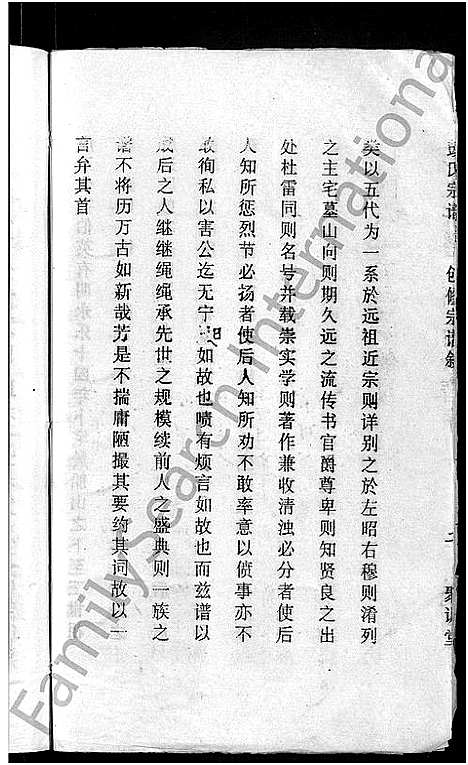 氏宗谱
修宗谱叙
二
类以五代为一系於远祖近宗则详别之於左昭右穆则淆列
之主宅墓山向则期久远之流传书官爵尊卑则知贤良之出
处杜雷同则名号并载崇实学则著作兼收清浊必分者使后
人知所惩烈节必扬者使后人知所劝不敢率意以偾事亦不
敢徇私以害公迄无宁如故也啧有烦言如故也而兹谱以
成后之人继继绳绳承先世之规模续前人之盛典则一族之
谱不将历万古如新哉芳是不揣庸陋撮其要约其词故以一
言弁其首
FamilySearch International